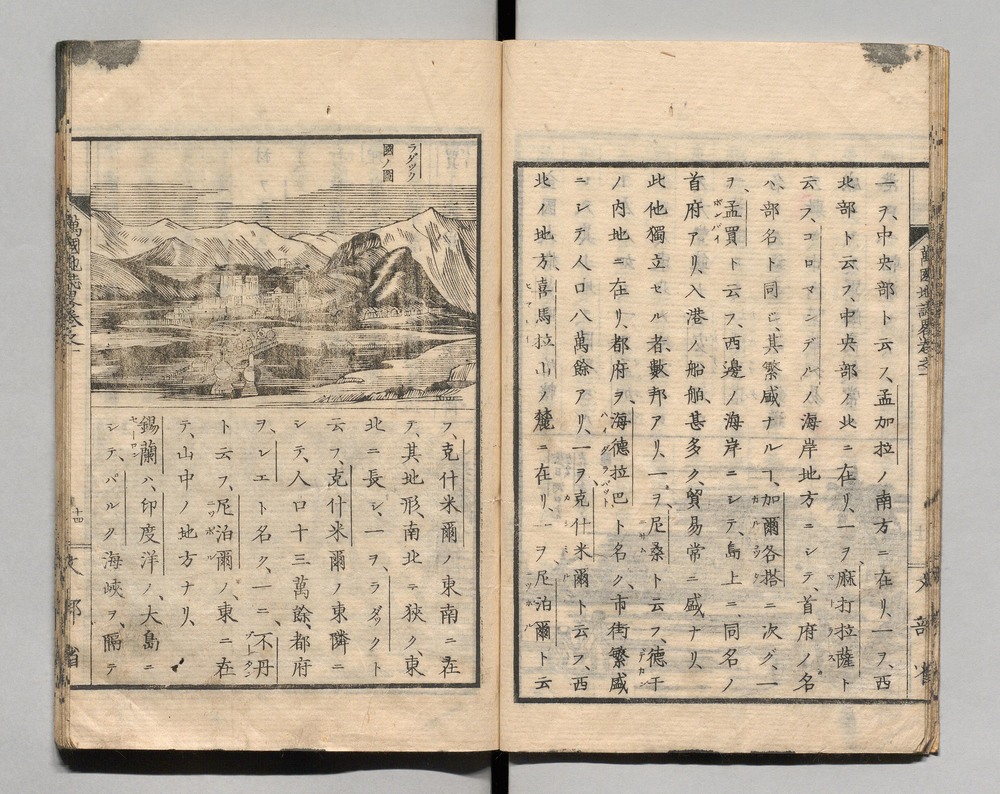 一ヲ、中央部ト云フ、孟加拉ノ南方ニ在リ、一ヲ、西
北部ト云フ、中央部ノ北ニ在リ、一ヲ麻打拉薩ト
云フ、コロマンデルノ海岸地方ニシテ、首府ノ名
ハ、部名ト同ジ、其繁盛ナルヿ、加爾各搭ニ次グ、一
ヲ、孟買ト云フ、西邊ノ海岸ニシテ、島上ニ同名ノ
首府アリ、入港ノ船舶甚多ク、貿易常ニ盛ナリ、
此他獨立セル者數邦アリ、一ヲ、尼桑ト云フ、德干
ノ内地ニ在リ、都府ヲ海德拉巴ト名ク、市街繁盛
ニシテ人口八萬餘アリ、一ヲ克什米爾ト云フ、西
北ノ地方喜馬拉山ノ麓ニ在リ、一ヲ尼泊爾ト云
ラダック
國ノ圖
フ、克什米爾ノ東南ニ在
テ、其地形、南北ニ狹ク、東
北ニ長シ、一ヲ、ラダックト
云フ、克什米爾ノ東隣ニ
シテ、人口十三萬餘、都府
ヲ、レエト名ク、一ニ、不丹
ト云フ、尼泊爾ノ、東ニ在
テ、山中ノ地方ナリ、
錫蘭ハ、印度洋ノ、大島ニ
シテ、パルク海峽ヲ、隔テ
萬國地誌畧卷之一
十四
文部省